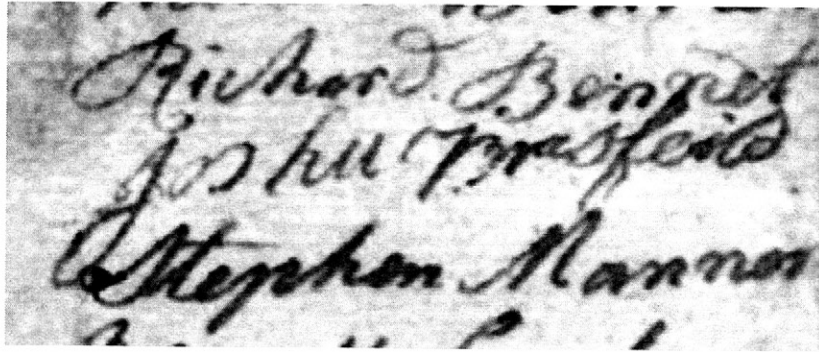 Richard Bennet
Joshu Brasfeild
Stephen Mannen